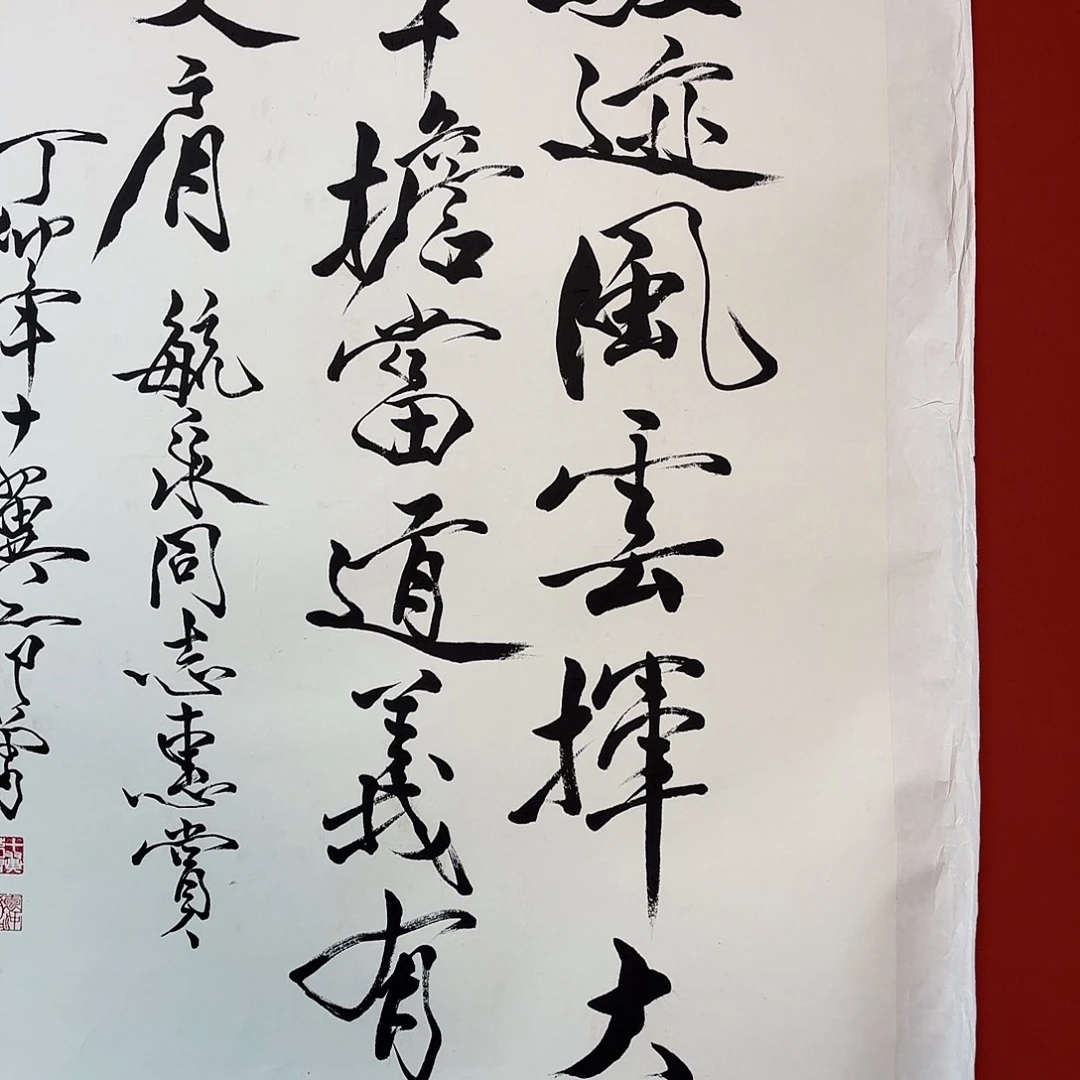 迹風雲揮大
擔當道義有
肩 毓同志惠賞
丁卯年十翼